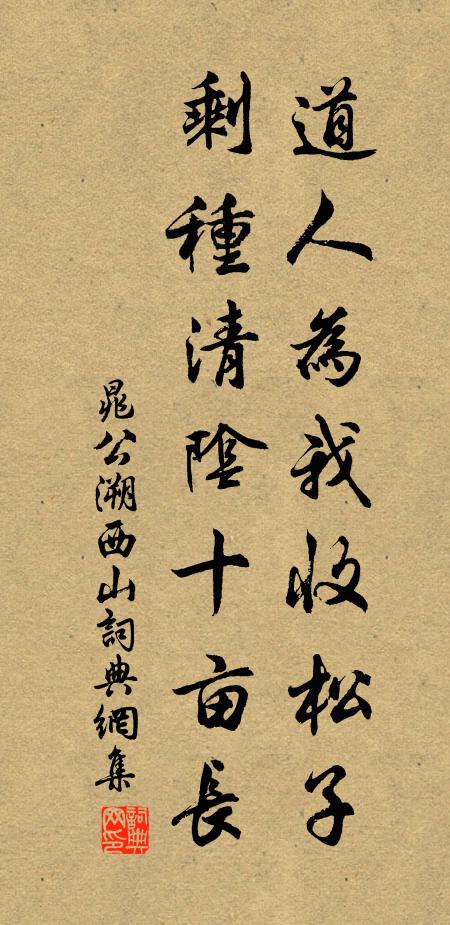 道人為我收松子
剩種清陰十亩長
晁公溯西山詞典網集
詞典网印